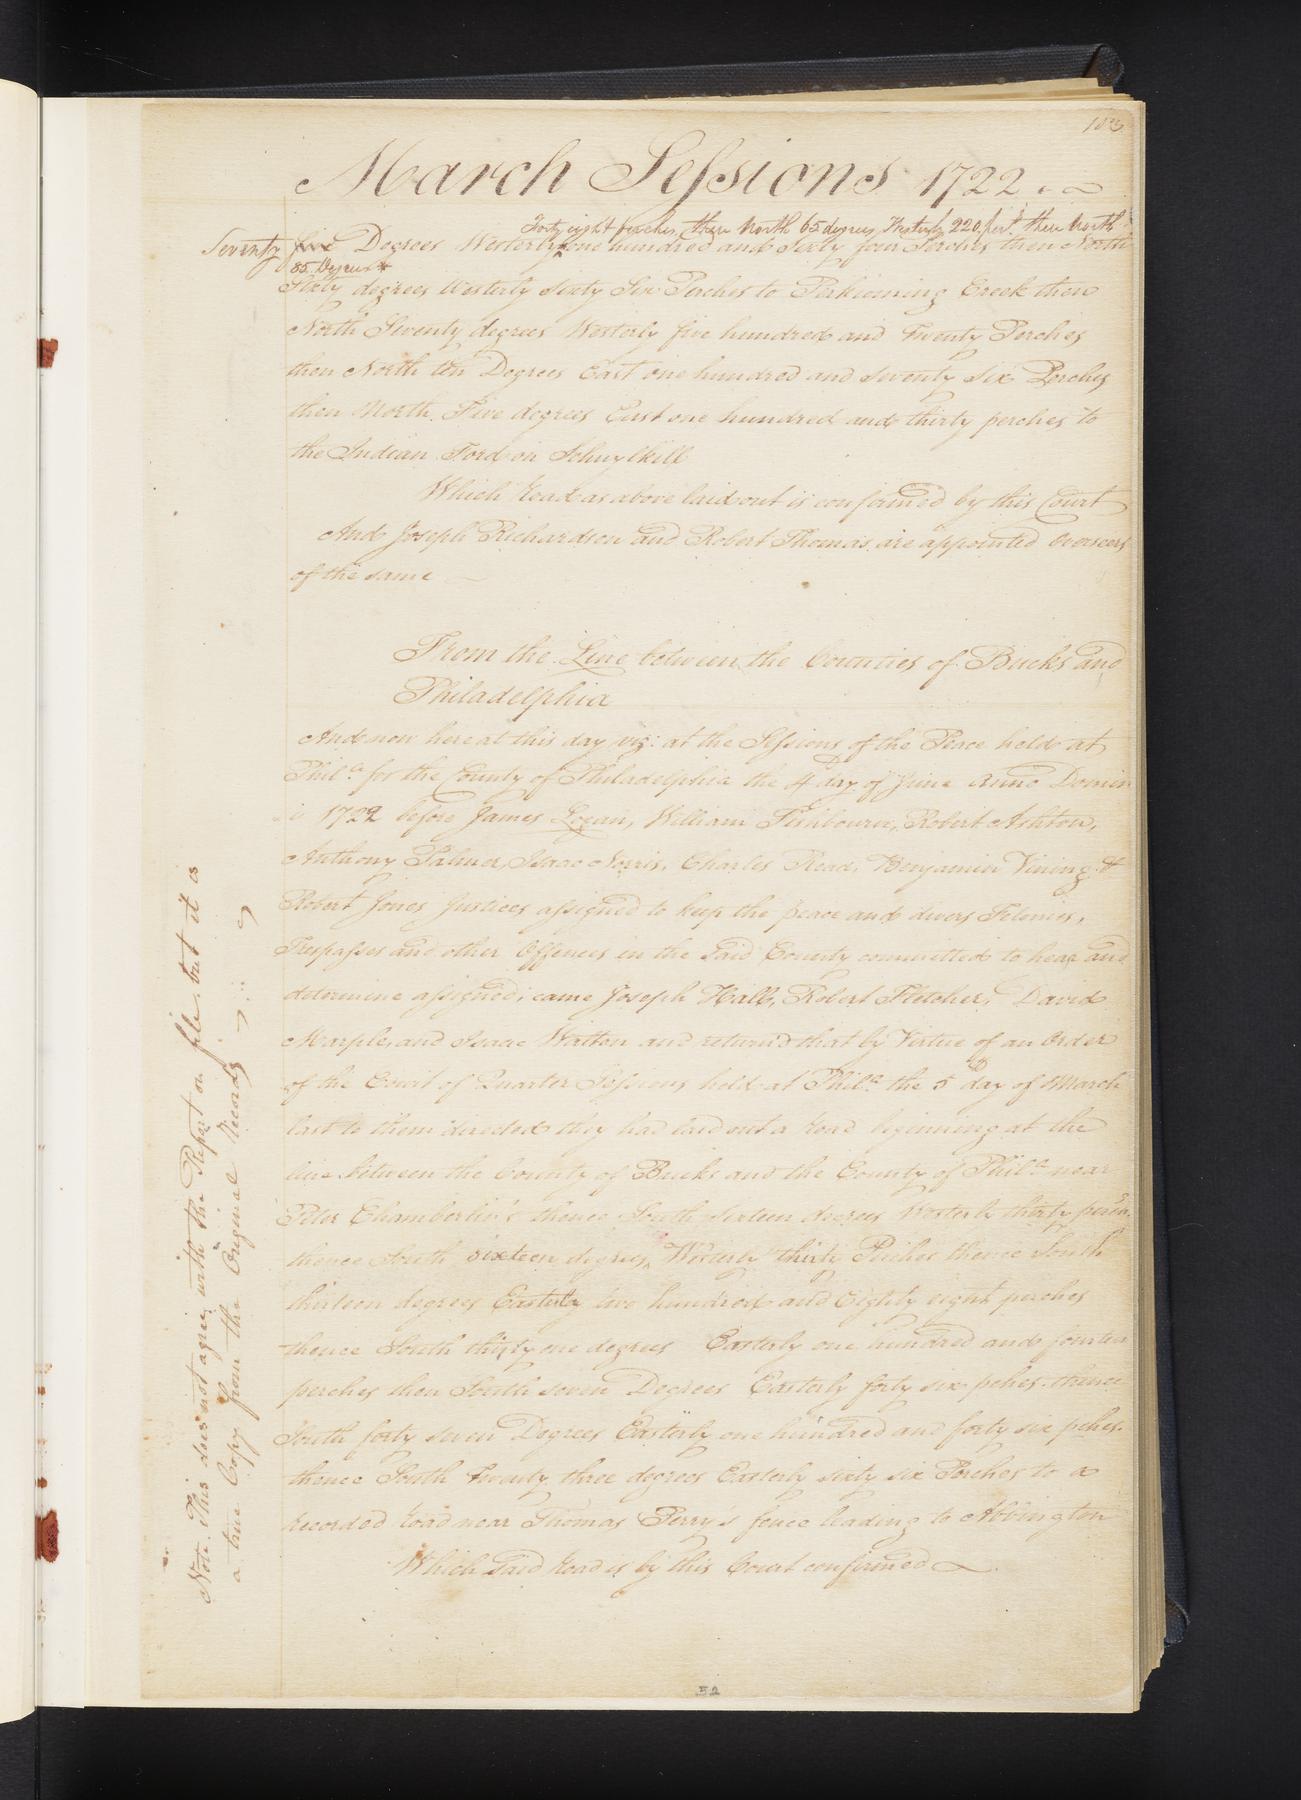 103
March Sessions 1722
Forty eight perches, then North 65 degrees Westerly 220 per.s then North
Seventy five Degrees Westerly one hundred and Sixty four Perches then North
85 Degrees *
Sixty degrees Westerly Sixty Six Perches to Perkioming Creek then
North Seventy degrees Westerly five hundred and Twenty Perches
then North ten Degrees East one hundred and Seventy Six Perches
then North Five degrees East one hundred and thirty perches to
the Indian Ford on Schuylkill
Which Road as above laid out is confirmed by this Court
And Joseph Richardson and Robert Thomas are appointed Overseers
of the same
From the Line between the Counties of Bucks and
Philadelphia
And now here at this day viz: at the Sessions of the Peace held at
Phil.a for the County of Philadelphia the 4 day of June Anno Domin
i 1722 before James Logan, William Fishbourn, Robert Ashton,
Anthony Palmer, Isaac Norris, Charles Read, Benjamin Vining &
Robert Jones Justices assigned to keep the peace and divers Felonies,
Trespasses and other Offences in the Said County committed to hear and
determine assigned; came Joseph Hall, Robert Fletcher, David
Marple, and Isaac Watton and return'd that by Virtue of an Order
of the Court of Quarter Sessions held at Phil.a the 5th day of March
last to them directed they had laid out a Road beginning at the
line between the County of Bucks and the County of Phil.a near
Peter Chamberlin's thence South Sixteen degrees Westerly thirty perch.s
thence South sixteen degrees Westerly thirty Perches thence South
thirteen degrees Easterly two hundred and Eighty eight perches
thence South thirty one degrees Easterly one hundred and fourteen
perches then South seven Degrees Easterly forty six pches. thence
South forty seven Degrees Easterly one hundred and forty six pches.
thence South twenty three degrees Easterly sixty six Perches to a
recorded Road near Thomas Perry's fence leading to Abbington
Which Said Road is by this Court confirmed
Note. This does not agree with the Report on file, but it is
a true Copy from the Original Records
52